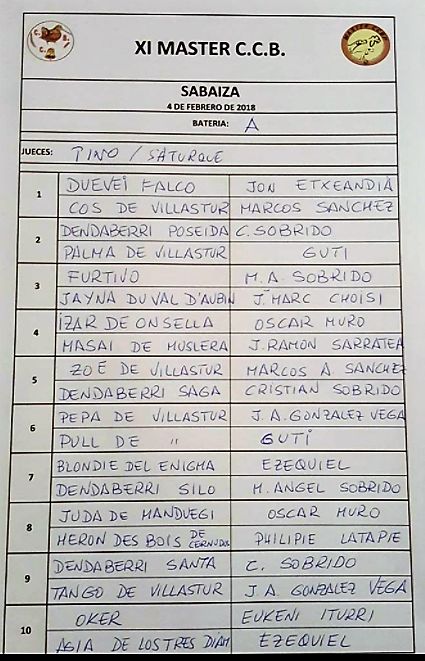 XI MASTER C.C.B.
SABAIZA
4 DE FEBRERO DE 2018
BATERIA: A
JUECES: TINO / SATURQUE
1 DUEVEI FALCO JON ETXEANDIA
COS DE VILLASTUR MARCOS SANCHEZ
2 DENDABERRI POSEIDA C. SOBRIDO
PALMA DE VILLASTUR GUTI
3 FURTIVO M. A. SOBRIDO
JAYNA DU VAL D'AUBIN J. MARC CHOISI
4 IZAR DE ONSELLA OSCAR MURO
MASAI DE MUSLERA J. RAMON SARRATEA
5 ZOE DE VILLASTUR MARCOS A. SANCHEZ
DENDABERRI SAGA CRISTIAN SOBRIDO
6 PEPA DE VILLASTUR J. A. GONZALEZ VEGA
PULL DE " GUTI
7 BLONDIE DEL ENIGMA EZEQUIEL
DENDABERRI SILO M. ANGEL SOBRIDO
8 JUDA DE MANDUEGI OSCAR MURO
HERON DES BOIS DE PHILIPIE LATAPIE
9 DENDABERRI SANTA C. SOBRIDO
TANGO DE VILLASTUR J A. GONZALEZ VEGA
10 OKER EUKENI ITURRI
ASIA DE LOS TRES DIAM EZEQUIEL